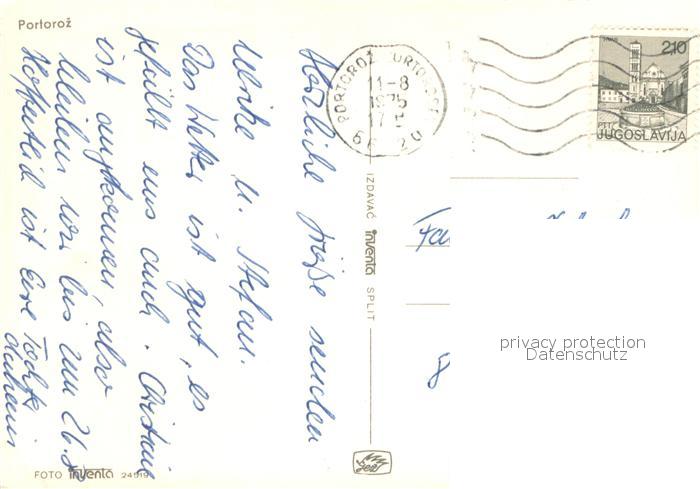 Portorož
Herzliche Grüße senden
Ulrike u. Stefan.
Das Wetter ist gut, es
gefällt uns auch. Christane
ist angekommen, also
bleiben wir bis zum 26.8
Hoffentlich ist Eure Tochter
daheim
FOTO inventa
IZDAVAČ inventa SPLIT
PORTOROŽ PORTOROSE
11-8
1975
17
66320
2,10
PTT
JUGOSLAVIJA
Fa
8
privacy protection
Datenschutz